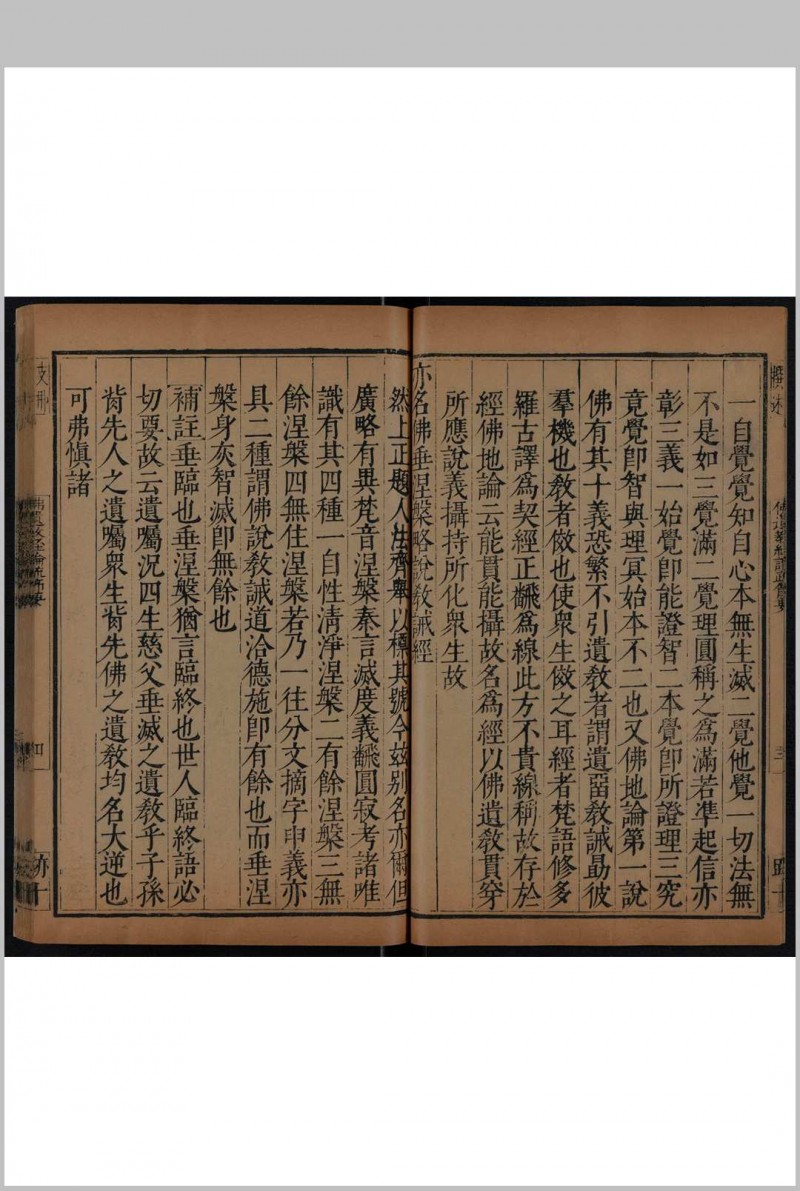 一自覺覺知自心本無生滅二覺他覺一切法無
不是如三覺滿二覺理圓稱之爲滿若準起信亦
彰三義一始覺卽能證智二本覺卽所證理三究
竟覺卽智與理冥始本不二也又佛地論第一說
佛有其十義恐繁不引遺敎者謂遺留敎誡勗彼
羣機也敎者倣也使衆生倣之耳經者梵語修多
羅古譯爲契經正飜爲線此方不貴線稱故存於
經佛地論云能貫能攝故名爲經以佛遺敎貫穿
所應說義攝持所化衆生故
亦名佛垂涅槃略說敎誡經
然上正題人法齊舉以標其號今玆別名亦爾但
廣略有異梵音涅槃秦言滅度義飜圓寂考諸唯
識有其四種一自性清淨涅槃二有餘涅槃三無
餘涅槃四無住涅槃若乃一往分文摘字申義亦
具二種謂佛說敎誡道洽德施卽有餘也而垂涅
槃身灰智滅卽無餘也
補註垂臨也垂涅槃猶言臨終也世人臨終語必
切要故云遺囑況四生慈父垂滅之遺敎乎子孫
背先人之遺囑衆生背先佛之遺敎均名大逆也
可弗愼諸